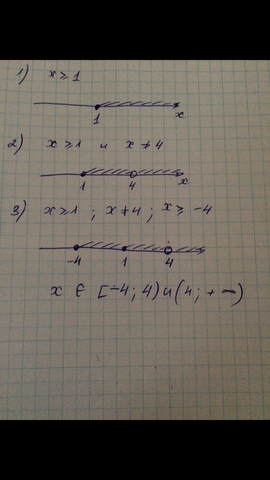 1) x ⩾ 1
1 x
2) x ⩾ 1 и x ≠ 4
1 4 x
3) x ⩾ 1 ; x ≠ 4 ; x ⩾ -4
-4 1 4
x ∈ [-4; 4) u (4; +∞)